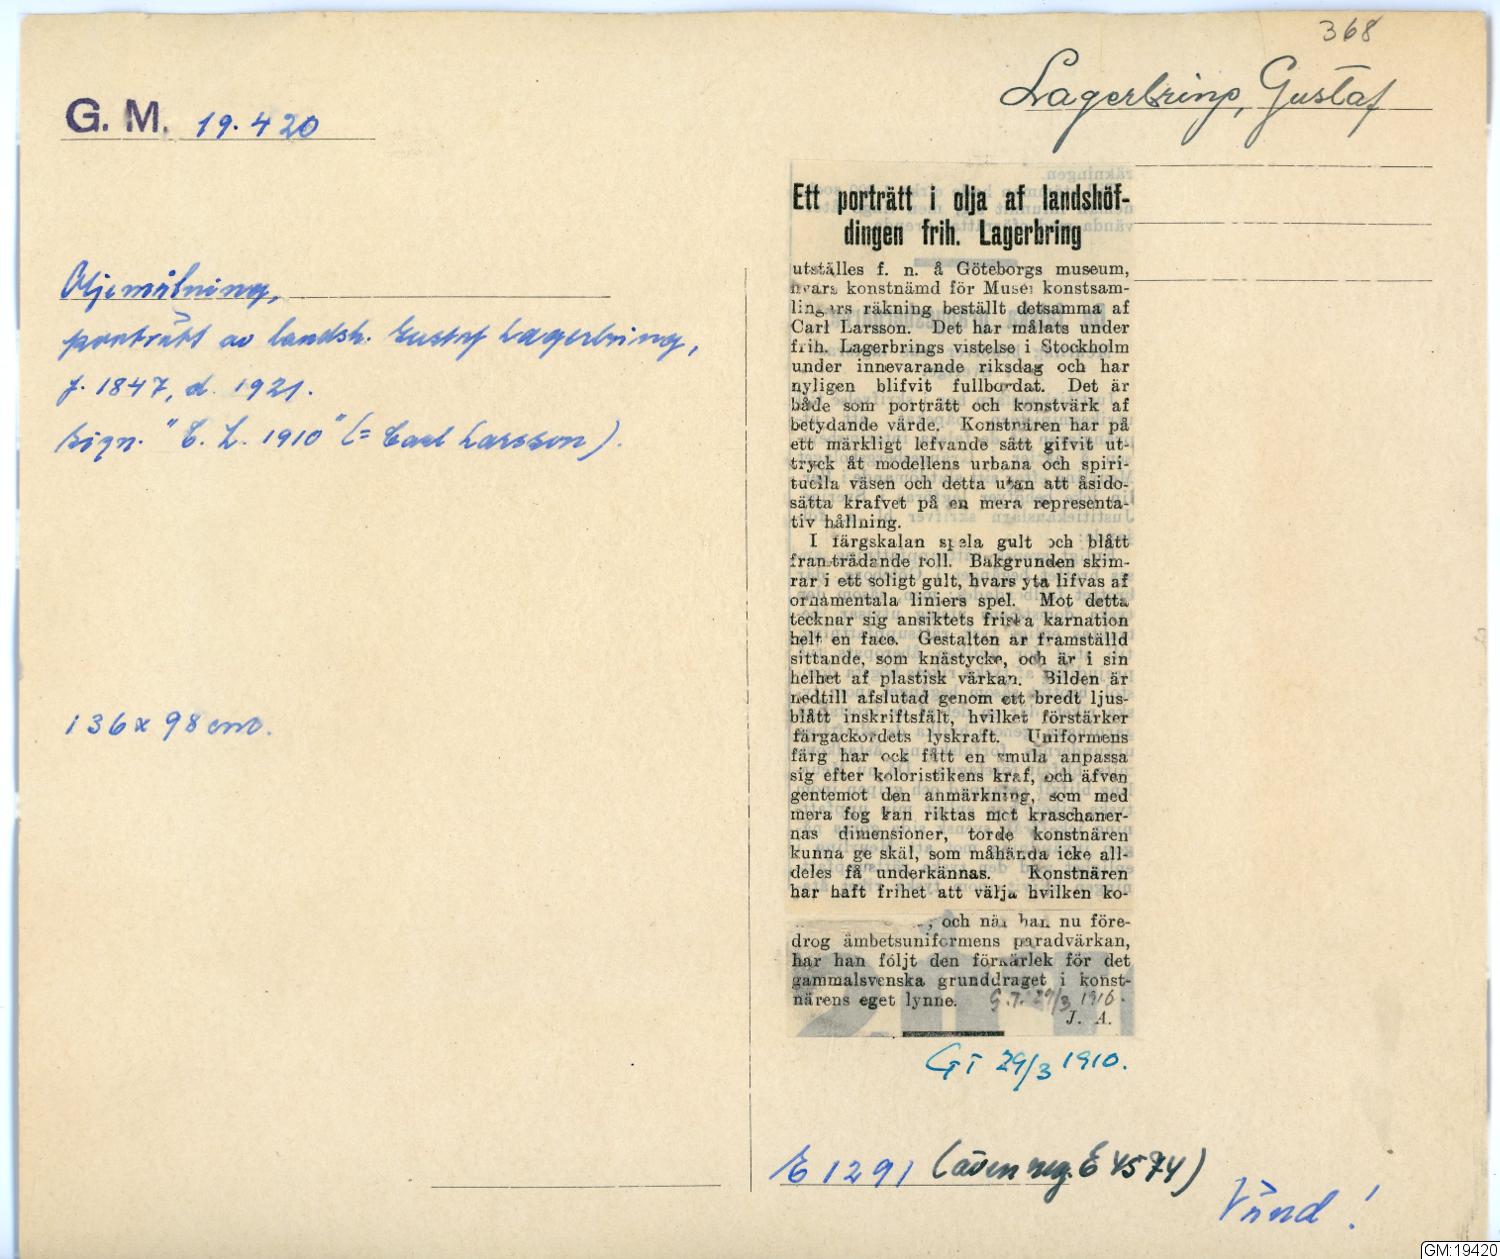 368
Lagerbring, Gustaf
G. M. 19.420
Oljemålning,
porträtt av landsh. Gustaf Lagerbring,
f. 1847, d. 1921.
Sign. "C. L. 1910" (= Carl Larsson).
136 x 98 cm.
Ett porträtt i olja af landshöf-
dingen frih. Lagerbring
utställes f. n. å Göteborgs museum,
hvars konstnämd för Musei konstsam-
lingars räkning beställt detsamma af
Carl Larsson. Det har målats under
frih. Lagerbrings vistelse i Stockholm
under innevarande riksdag och har
nyligen blifvit fullbordat. Det är
både som porträtt och konstvärk af
betydande värde. Konstnären har på
ett märkligt lefvande sätt gifvit ut-
tryck åt modellens urbana och spiri-
tuella väsen och detta utan att åsido-
sätta krafvet på en mera representa-
tiv hållning.
I färgskalan spela gult och blått
framträdande roll. Bakgrunden skim-
rar i ett soligt gult, hvars yta lifvas af
ornamentala liniers spel. Mot detta
tecknar sig ansiktets friska karnation
helt en face. Gestalten är framställd
sittande, som knästycke, och är i sin
helhet af plastisk värkan. Bilden är
nedtill afslutad genom ett bredt ljus-
blått inskriftsfält, hvilket förstärker
färgackordets lyskraft. Uniformens
färg har ock fått en smula anpassa
sig efter koloristikens kraf, och äfven
gentemot den anmärkning, som med
mera fog kan riktas mot kraschaner-
nas dimensioner, torde konstnären
kunna ge skäl, som måhända icke all-
deles få underkännas. Konstnären
har haft frihet att välja hvilken ko-
, och när han nu före-
drog ämbetsuniformens paradvärkan,
har han följt den förkärlek för det
gammalsvenska grunddraget i konst-
närens eget lynne. G.T. 29/3 1910.
J. A.
GT 29/3 1910.
E 1291 (även reg. E 4574)
Vänd!
GM:19420